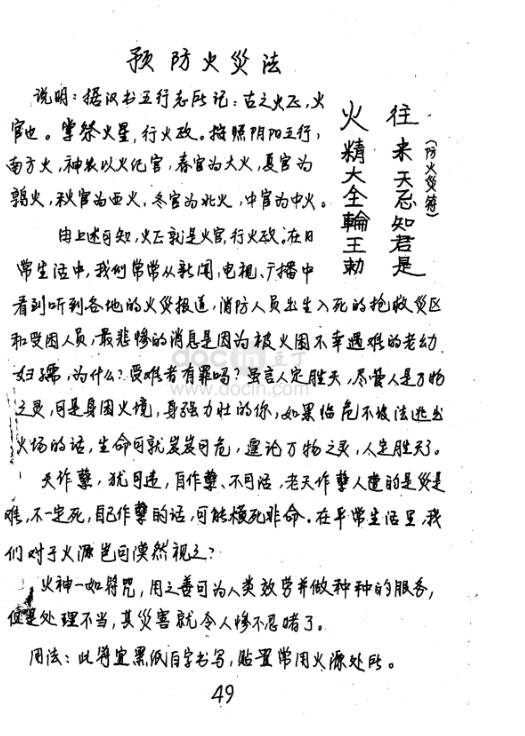 预防火災法
说明：据汉书五行志所记：古之火正，火
官也。掌祭火星，行火政。按照阴阳五行，
南方火，神农以火化官，春官为大火，夏官为
鹑火，秋官为西火，冬官为北火，中官为中火。
由上述可知，火正就是火官，行火政。在日
常生活中，我们常常从新闻，电视、广播中
看到听到各地的火災报道，消防人员出生入死的抢救災区
和受困人员，最悲惨的消息是因为被火困不幸遇难的老幼
妇孺，为什么？受难者有罪吗？虽言人定胜天，尽管人是万物
之灵，可是身困火境，身强力壮的你，如果临危不被法逃出
火场的话，生命可就岌岌可危，遑论万物之灵，人定胜天了。
天作孽，犹可违，自作孽、不可活，老天作孽人遭的是災是
难，不一定死，自己作孽的话，可能横死非命。在平常生活里，我
们对于火源岂可漠然视之？
火神一如符咒，用之善可为人类效劳并做种种的服务，
但是处理不当，其災害就令人惨不忍睹了。
用法：此符宜黑纸白字书写，贴置常用火源处所。
(防火災符)
往来天忌知君是
火精大全輪王勅
docin 豆丁
www.docin.com
49